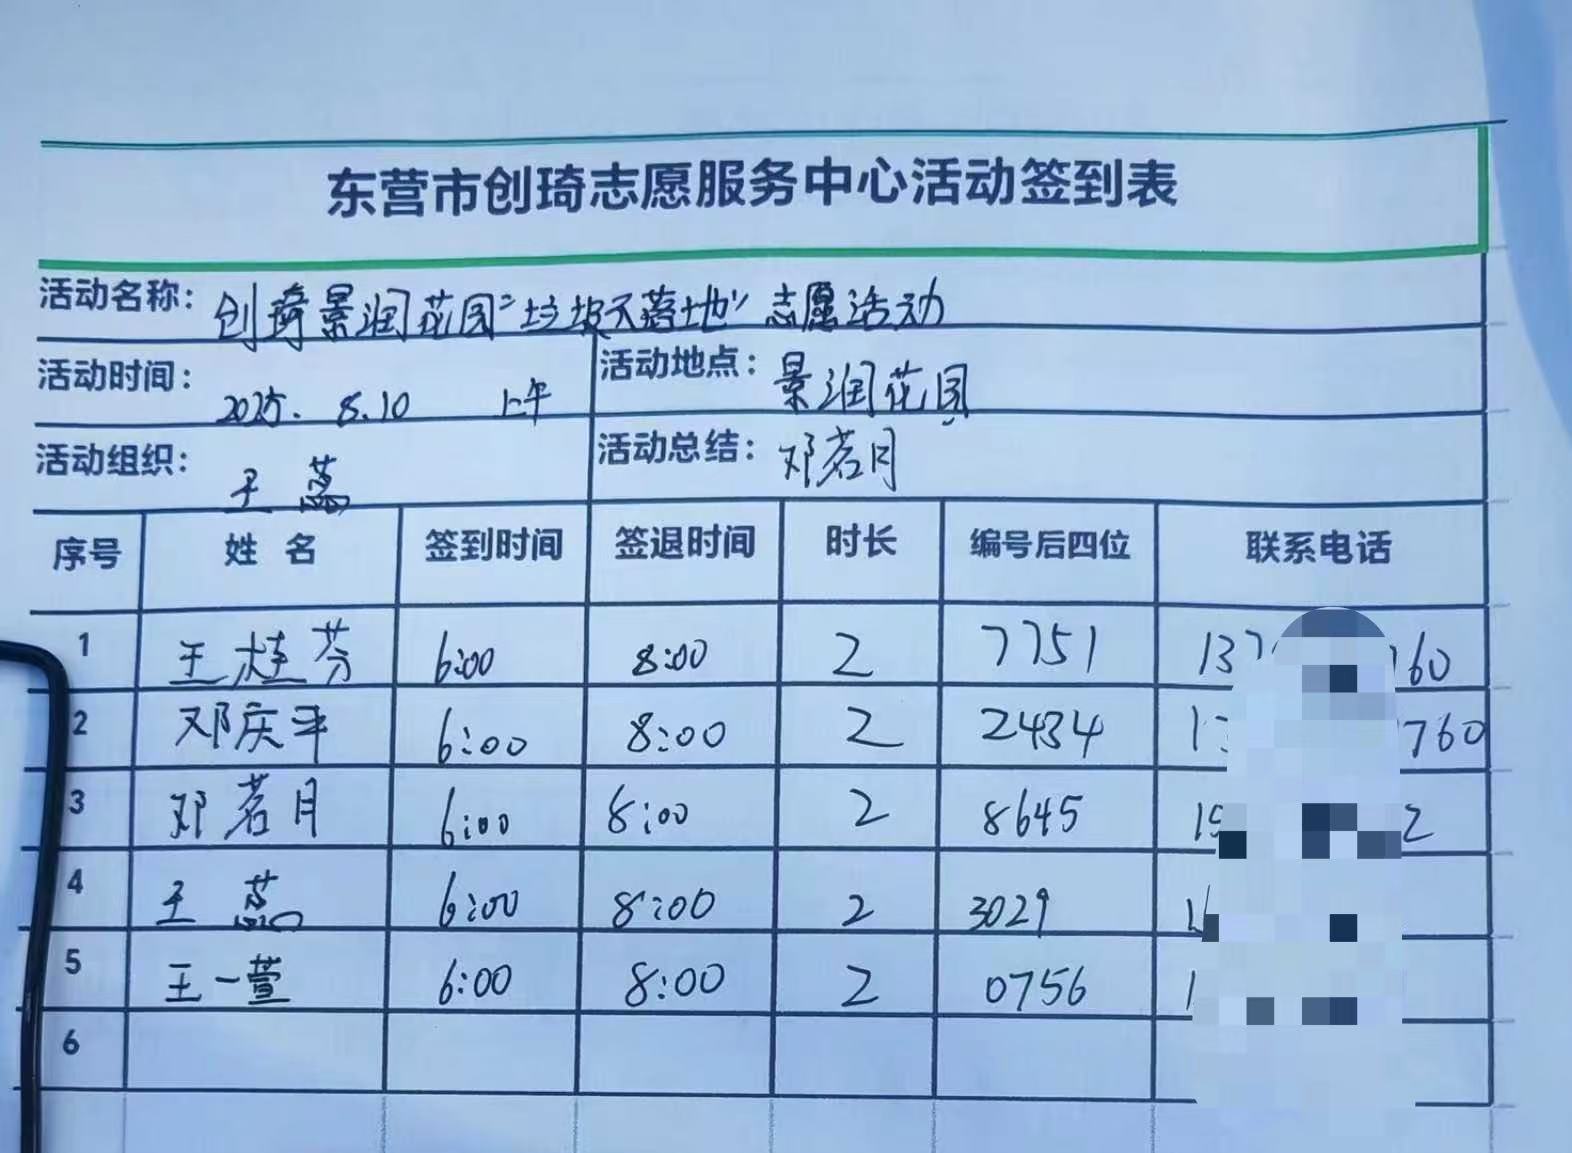 东营市创琦志愿服务中心活动签到表
活动名称：创琦景润花园“垃圾不落地”志愿活动
活动时间：2025.8.10 上午 活动地点：景润花园
活动组织：王蕊 活动总结：邓茗月
序号 姓名 签到时间 签退时间 时长 编号后四位 联系电话
1 王桂芬 6:00 8:00 2 7751 137 160
2 邓庆平 6:00 8:00 2 2434 1 760
3 邓茗月 6:00 8:00 2 8645 15 2
4 王蕊 6:00 8:00 2 3029 1
5 王一萱 6:00 8:00 2 0756 1
6